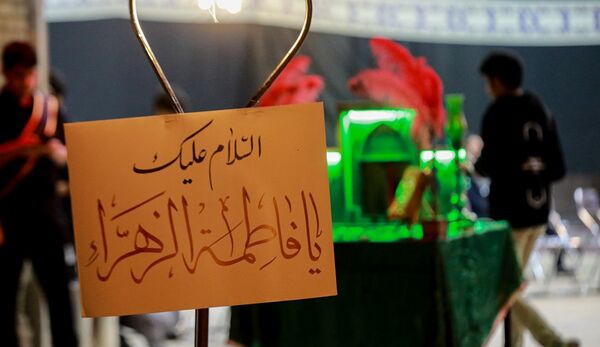 السّلام علیک
یا فاطمة الزهراء